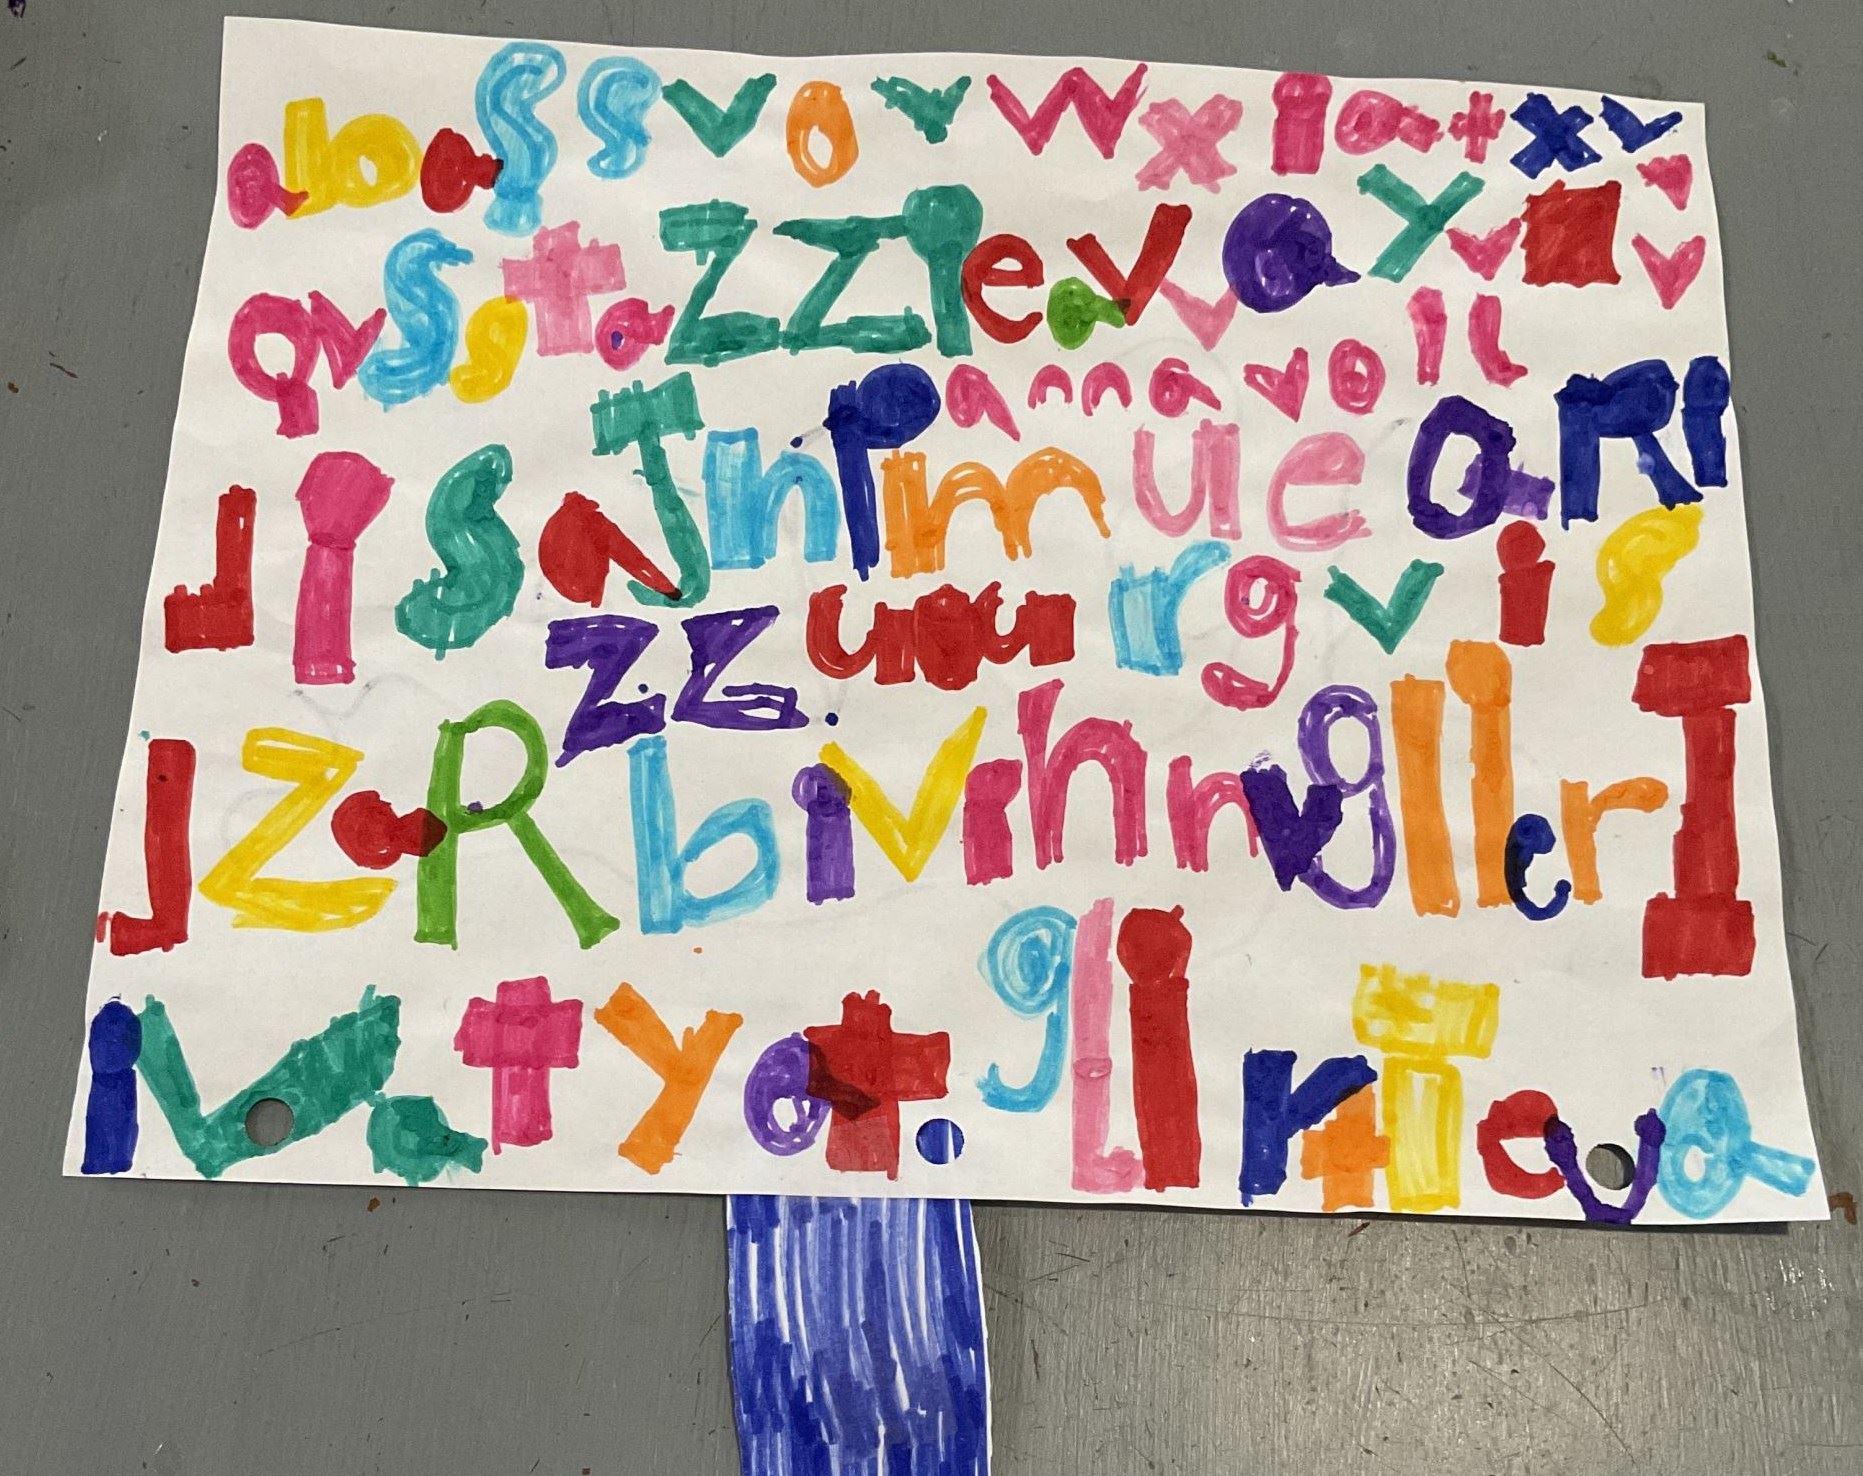 abassvovwxia+xv
qvsstazzievayvv
annavoll
JisaJnPmueaRi
zzuuurgvis
JZaRbivihnvgllerI
ivatyat.glirtTeva